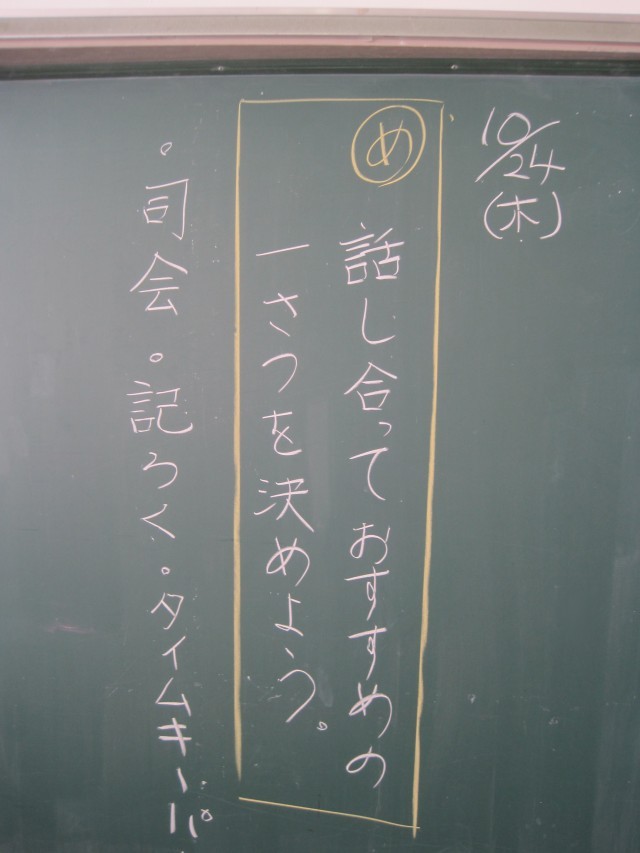 10/24
(木)
め 話し合っておすすめの
一さつを決めよう。
・司会・記ろく・タイムキーパー